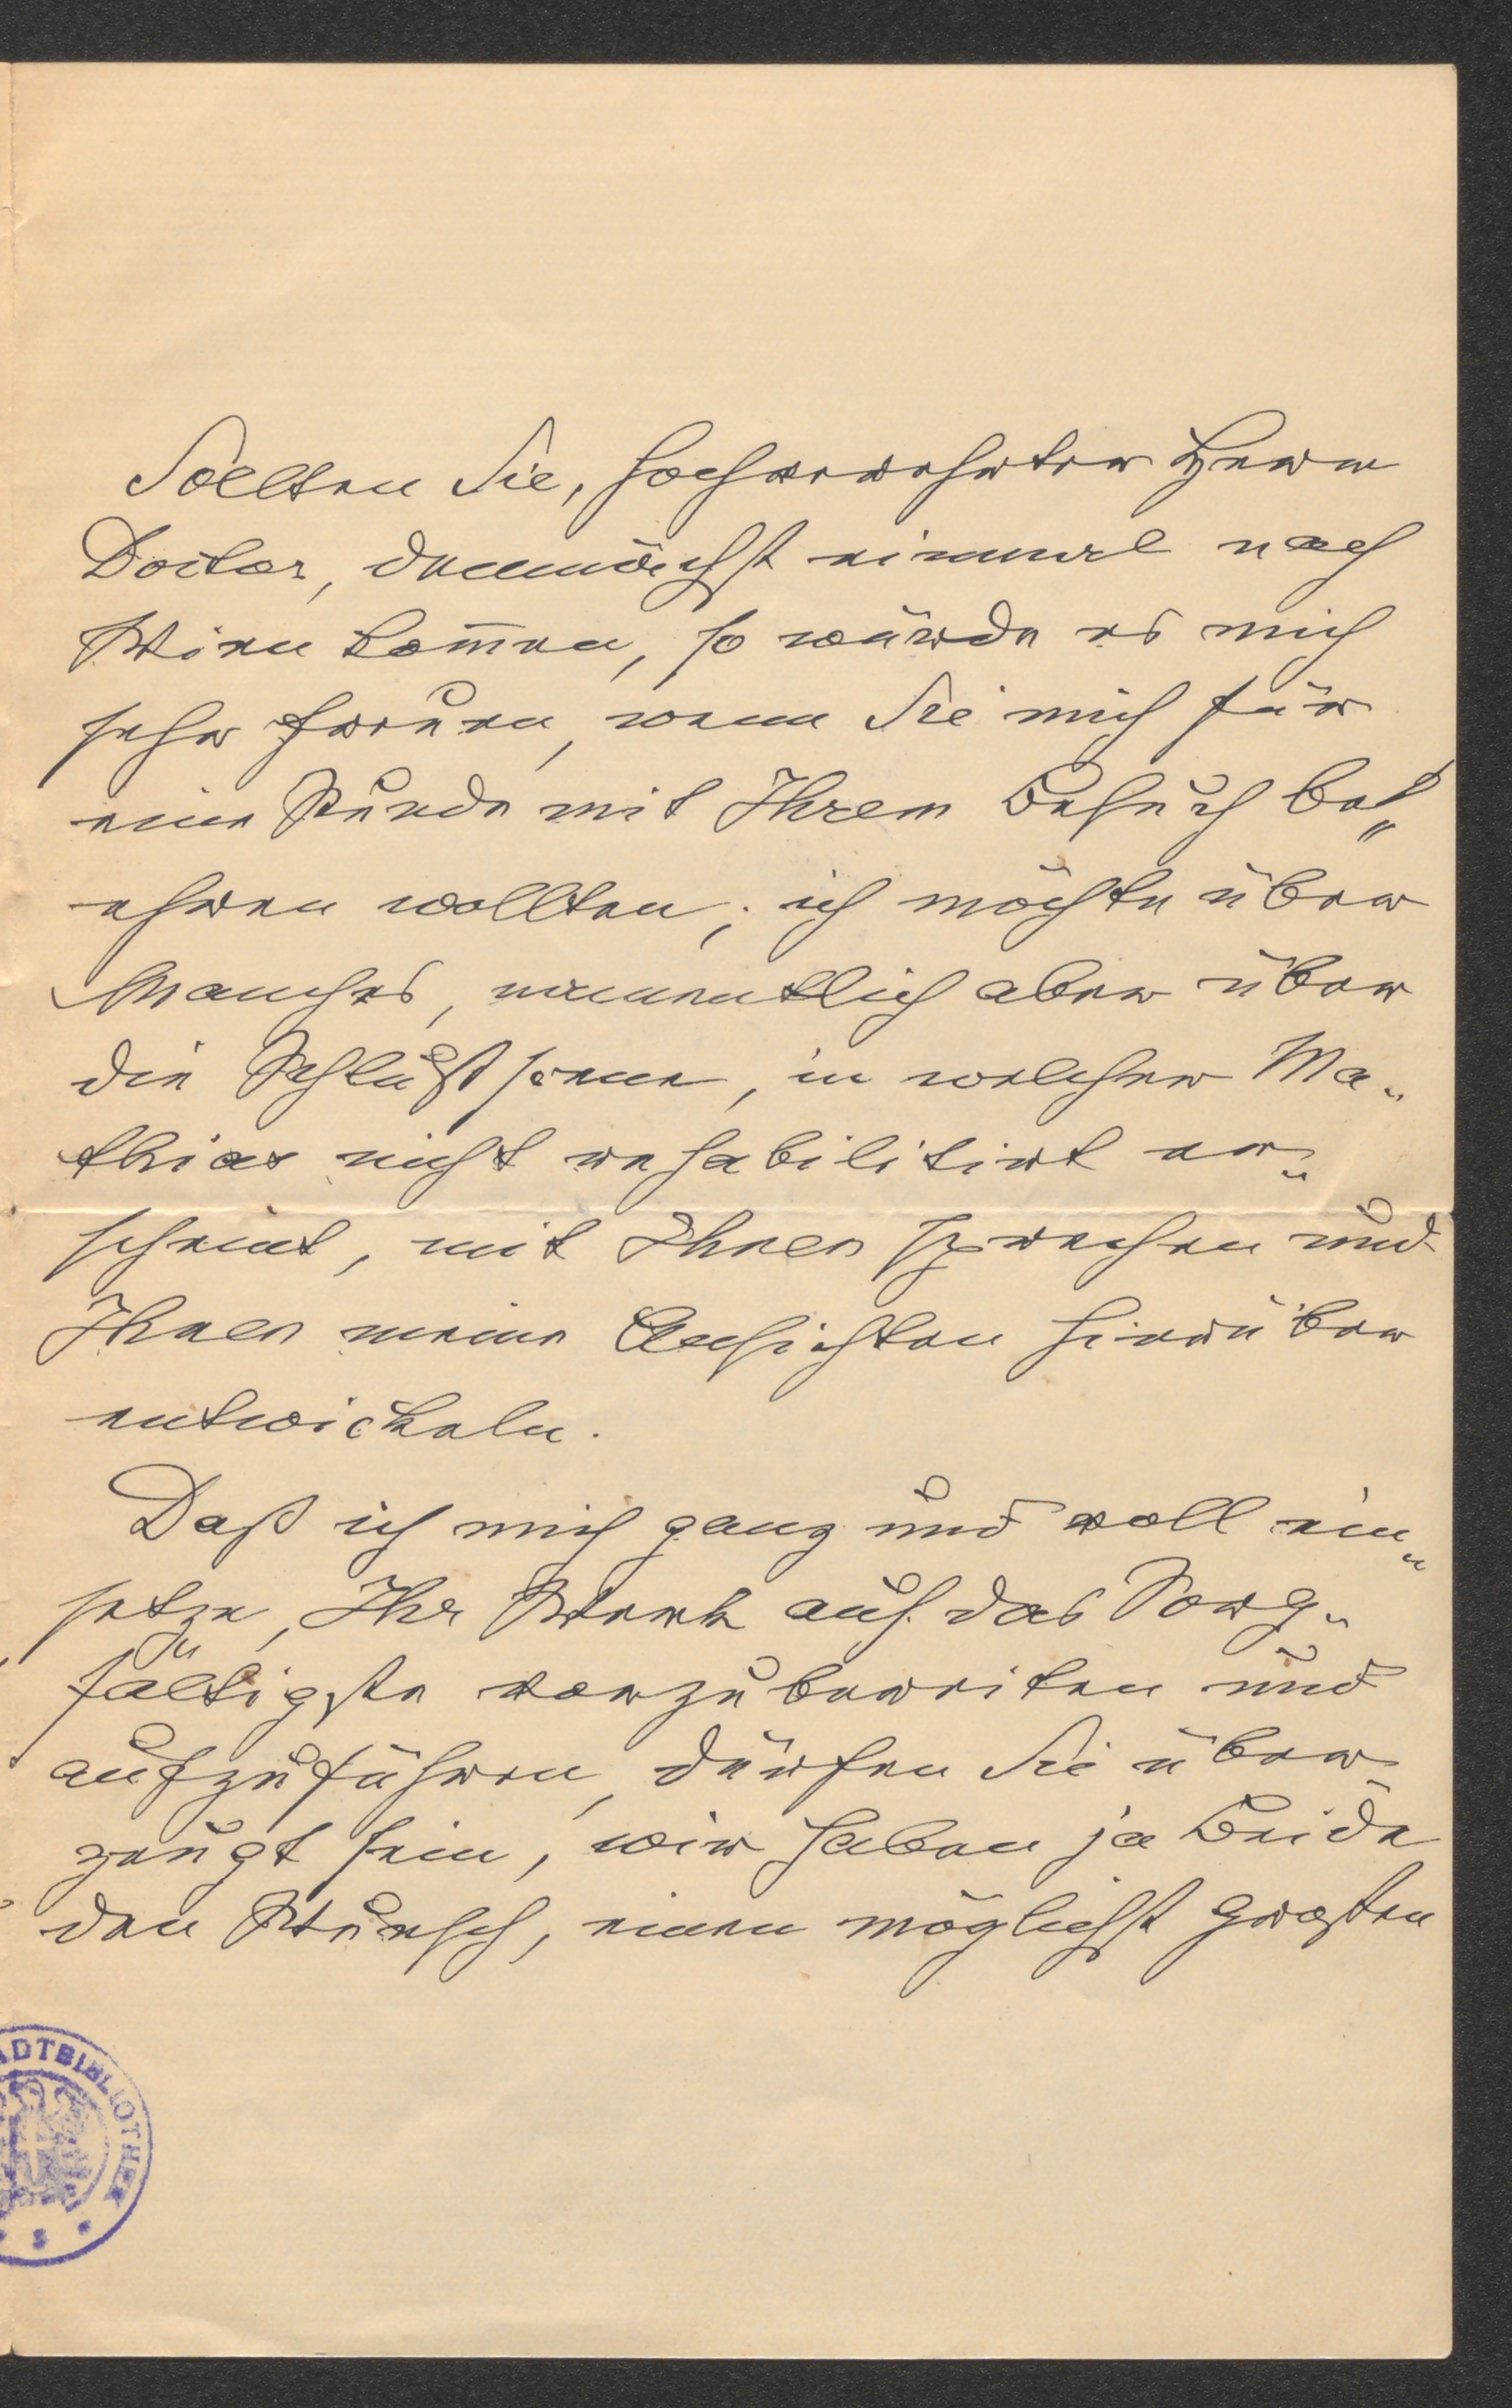 Sollten Sie, hochverehrter Herr
Doctor, demnächst einmal nach
Wien kom̅en, so würde es mich
sehr freuen, wenn Sie mich für
eine Stunde mit Ihrem Besuch be„
ehren wollten; ich möchte über
Manches, namentlich aber über
die Schlußscene, in welcher Ma„
thias nicht rehabilitirt er„
scheint, mit Ihnen sprechen und
Ihnen meine Ansichten hierüber
entwickeln.
Daß ich mich ganz und voll ein„
setze, Ihr Werk auf das Sorg„
fältigste vorzubereiten und
aufzuführen, dürfen Sie über
zeugt sein, wir haben ja Beide
den Wunsch, einen möglichst großen
ADTBIBLIOTHEK